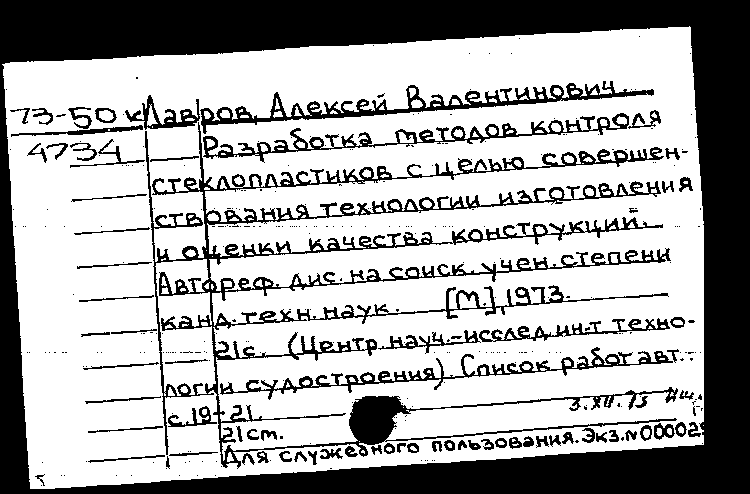 73-50 к Лавров, Алексей Валентинович.
4734 Разработка методов контроля
стеклопластиков с целью совершен-
ствования технологии изготовления
и оценки качества конструкций.
Автореф. дис. на соиск. учен. степени
канд. техн. наук. [М.], 1973.
21с. (Центр. науч.-исслед. ин-т техно-
логии судостроения). Список работ авт.:
с. 19-21.
3.XII.73
21 см.
Для служебного пользования. Экз. N 000029